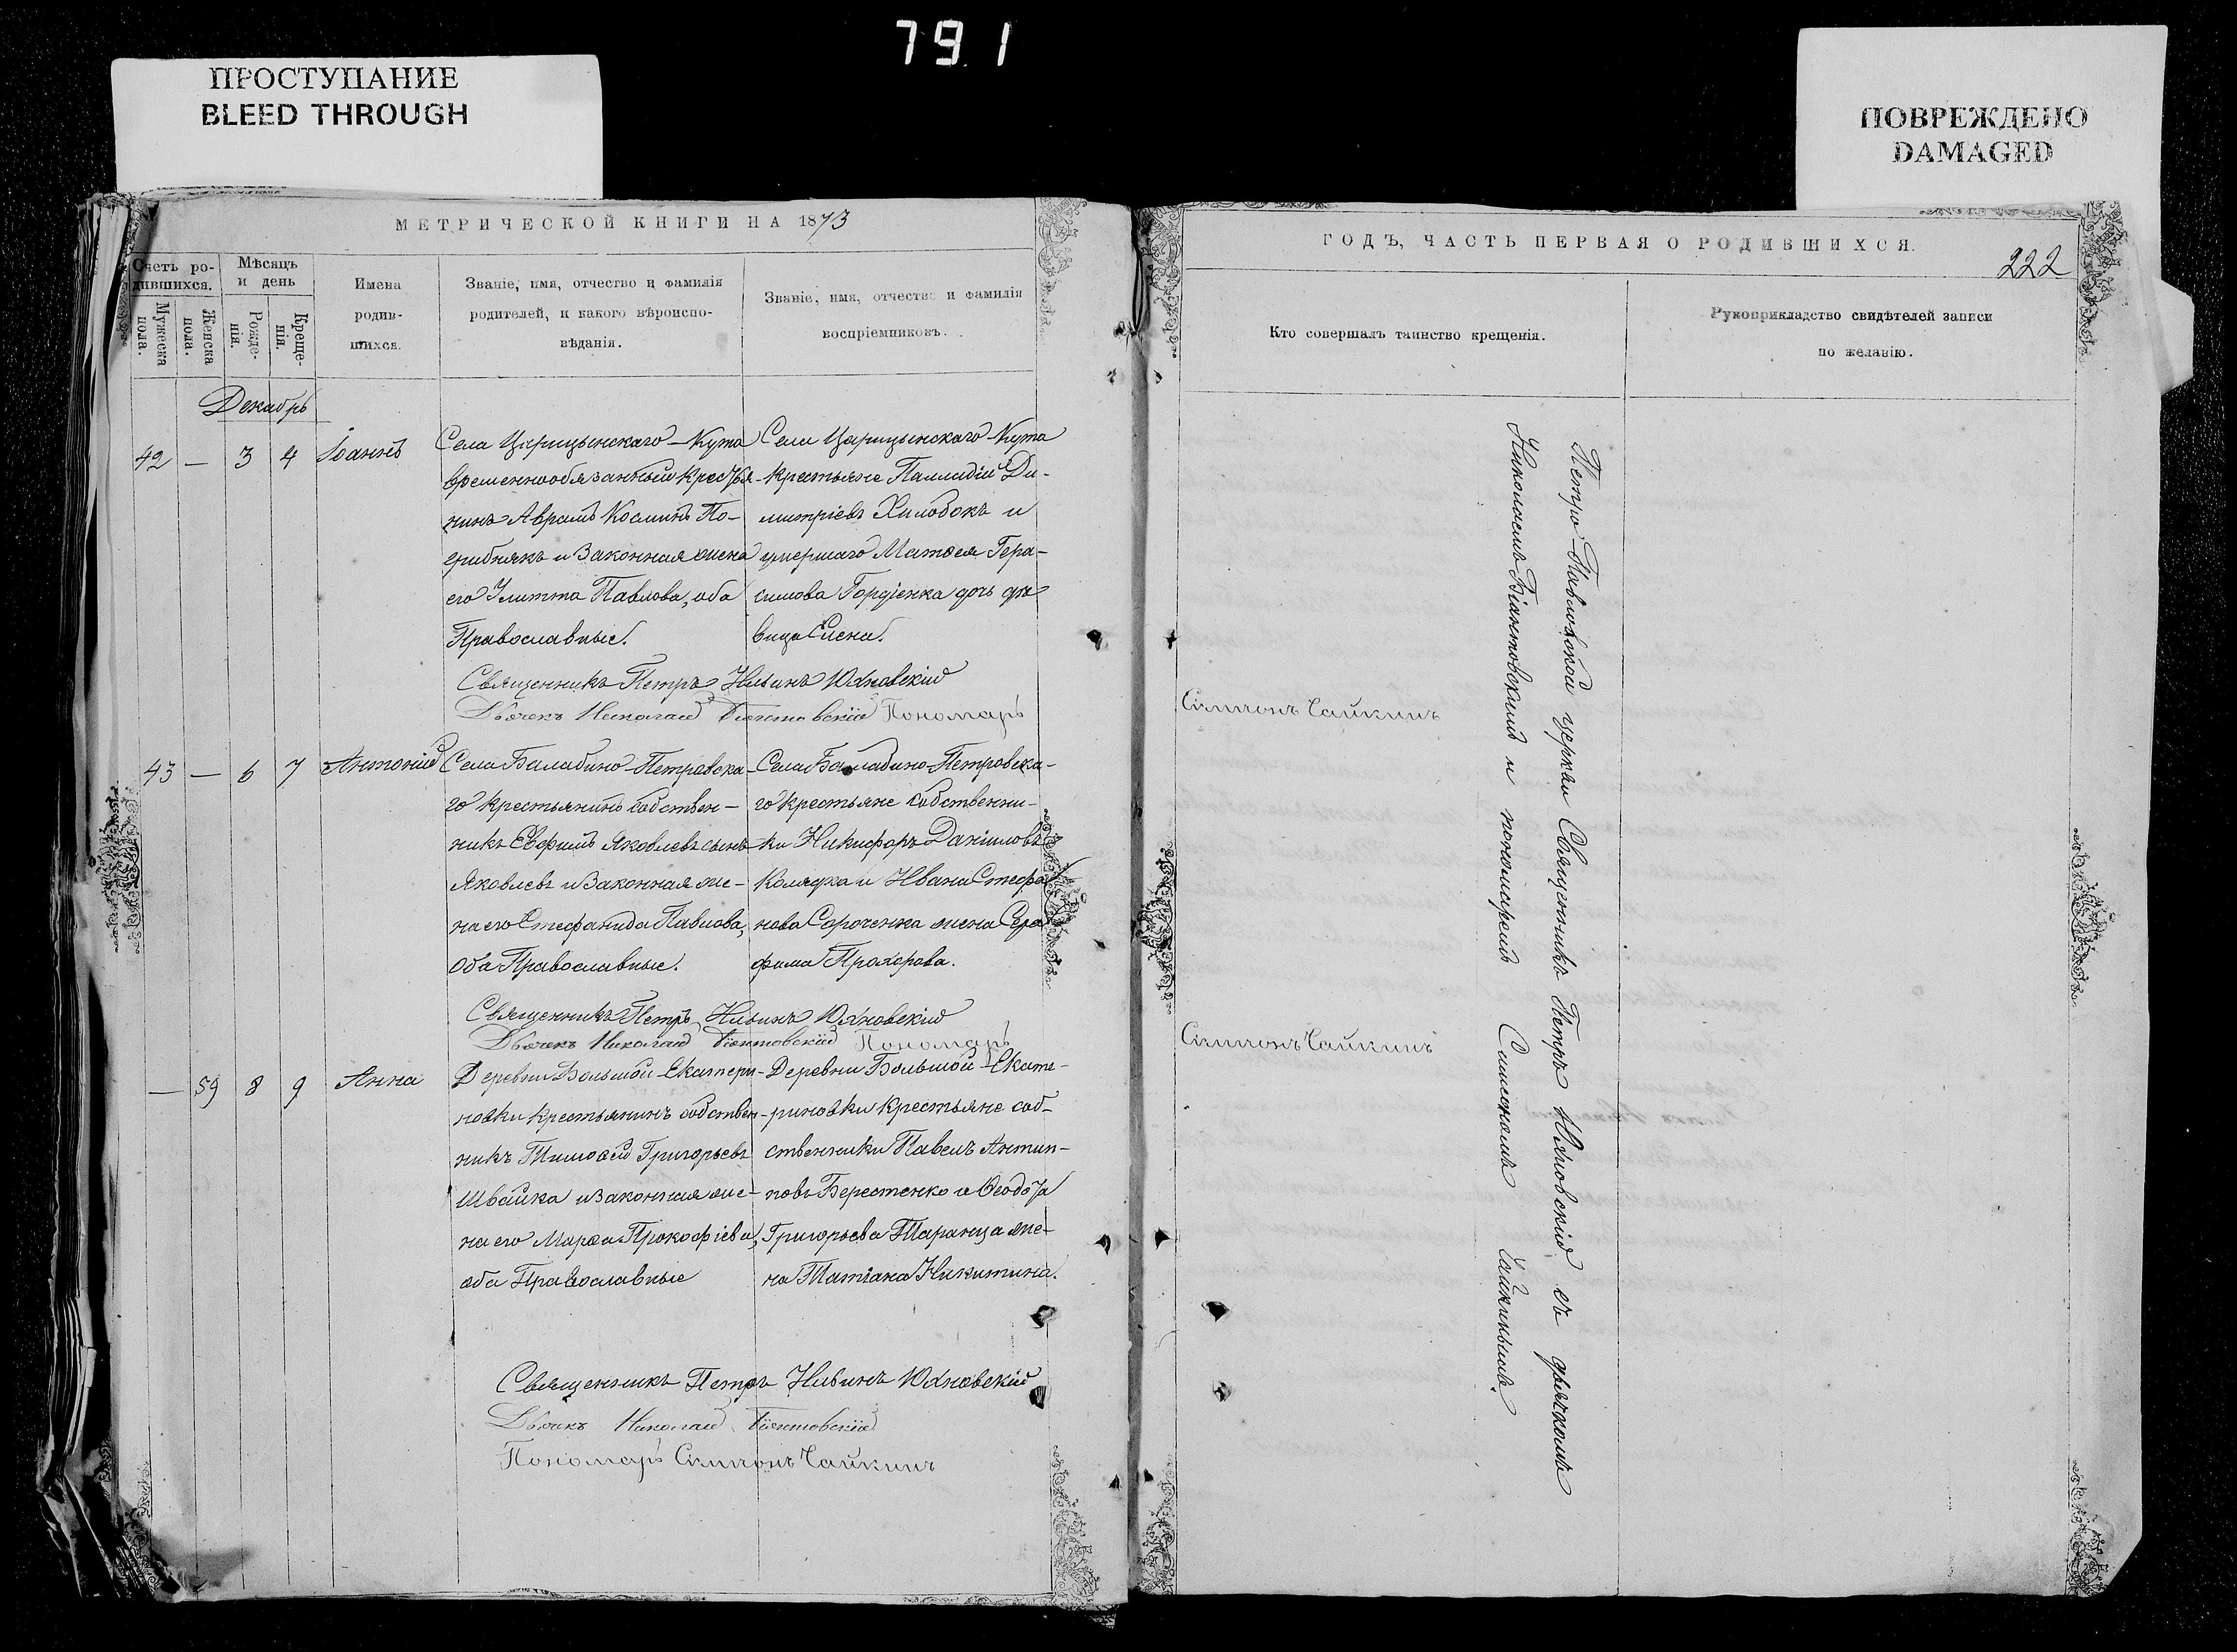 791
ПРОСТУПАНИЕ
BLEED THROUGH
ПОВРЕЖДЕНО
DAMAGED
МЕТРИЧЕСКОЙ КНИГИ НА 1873
Счетъ ро-
дившихся.
Мужеска
пола.
Женска
пола.
Мѣсяцъ
и день
Рожде-
нія.
Креще-
нія.
Имена
родив-
шихся.
Званіе, имя, отчество и фамилія
родителей, и какого вѣроиспо-
вѣданія.
Званіе, имя, отчество и фамилія
воспріемниковъ.
Декабрь
42 — 3 4 Іоаннъ
Села Царицынскаго-Кута
временнообязанный кресть-
нинъ Аврамъ Косминъ По-
грибнякъ и законная жена
его Улитта Павлова, оба
Православные.
Села Царицынскаго-Кута
крестьяне Палладій Ди-
митріевъ Хилобокъ и
умершаго Матѳея Гера-
симова Гордіенка дочь дѣ-
вица Елена.
Священникъ Петръ Ильинъ Юхновскій
Дьячекъ Николай Біянтовскій Пономарь
43 — 6 7 Антоній
Села Балабино-Петровска-
го крестьянинъ собствен-
никъ Евфимъ Яковлевъ сынъ
Яковлевъ и законная же-
на его Стефанида Павлова,
оба Православные.
Села Балабино-Петровска-
го крестьяне собственни-
ки Никифоръ Даніиловъ
Колядка и Ивана Стефа-
нова Сороченка жена Сера-
фима Прохорова.
Священникъ Петръ Ильинъ Юхновскій
Дьячекъ Николай Біянтовскій Пономарь
— 59 8 9 Анна
Деревни Большой-Екатери-
новки крестьянинъ собствен-
никъ Тимоѳей Григорьевъ
Швайка и законная же-
на его Марѳа Прокофіева,
оба Православные
Деревни Большой-Екате-
риновки крестьяне соб-
ственники Павелъ Антип-
повъ Берестенко и Ѳеодота
Григорьева Таранца же-
на Татіана Никитина.
Священникъ Петръ Ильинъ Юхновскій
Дьячекъ Николай Біянтовскій
Пономарь Симеонъ Чайкинъ
ГОДЪ, ЧАСТЬ ПЕРВАЯ О РОДИВШИХСЯ.
222
Кто совершалъ таинство крещенія.
Рукоприкладство свидѣтелей записи
по желанію.
Симеонъ Чайкинъ
Симеонъ Чайкинъ
Петро-Павловской церкви Священникъ Петръ Юхновскій съ дьячкомъ
Николаемъ Біантовскимъ и пономаремъ Симеономъ Чайкинымъ.